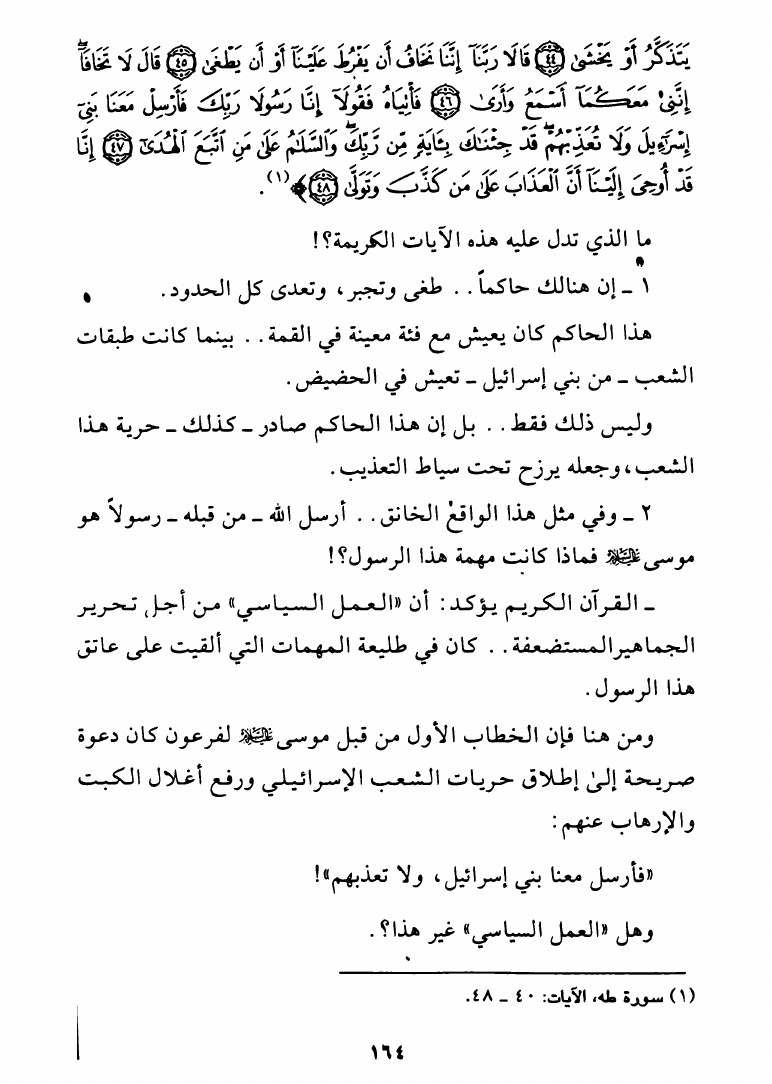 يَتَذَكَّرُ أَوْ يَخْشَىٰ ﴿٤٤﴾ قَالَا رَبَّنَا إِنَّنَا نَخَافُ أَن يَفْرُطَ عَلَيْنَا أَوْ أَن يَطْغَىٰ ﴿٤٥﴾ قَالَ لَا تَخَافَا ۖ
إِنَّنِي مَعَكُمَا أَسْمَعُ وَأَرَىٰ ﴿٤٦﴾ فَأْتِيَاهُ فَقُولَا إِنَّا رَسُولَا رَبِّكَ فَأَرْسِلْ مَعَنَا بَنِي
إِسْرَٰٓءِيلَ وَلَا تُعَذِّبْهُمْ ۖ قَدْ جِئْنَاكَ بِـَٔايَةٍ مِّن رَّبِّكَ ۖ وَالسَّلَامُ عَلَىٰ مَنِ اتَّبَعَ الْهُدَىٰ ﴿٤٧﴾ إِنَّا
قَدْ أُوحِيَ إِلَيْنَا أَنَّ الْعَذَابَ عَلَىٰ مَن كَذَّبَ وَتَوَلَّىٰ ﴿٤٨﴾﴾(١).
ما الذي تدل عليه هذه الآيات الكريمة؟!
١ ـ إن هنالك حاكماً.. طغى وتجبر، وتعدى كل الحدود.
هذا الحاكم كان يعيش مع فئة معينة في القمة.. بينما كانت طبقات
الشعب ـ من بني إسرائيل ـ تعيش في الحضيض.
وليس ذلك فقط.. بل إن هذا الحاكم صادر ـ كذلك ـ حرية هذا
الشعب، وجعله يرزح تحت سياط التعذيب.
٢ ـ وفي مثل هذا الواقع الخانق.. أرسل الله ـ من قبله ـ رسولاً هو
موسى عليه السلام فماذا كانت مهمة هذا الرسول؟!
ـ القرآن الكريم يؤكد: أن «العمل السياسي» من أجل تحرير
الجماهير المستضعفة.. كان في طليعة المهمات التي ألقيت على عاتق
هذا الرسول.
ومن هنا فإن الخطاب الأول من قبل موسى عليه السلام لفرعون كان دعوة
صريحة إلىٰ إطلاق حريات الشعب الإسرائيلي ورفع أغلال الكبت
والإرهاب عنهم:
«فأرسل معنا بني إسرائيل، ولا تعذبهم»!
وهل «العمل السياسي» غير هذا؟.
(١) سورة طه، الآيات: ٤٠ ـ ٤٨.
١٦٤